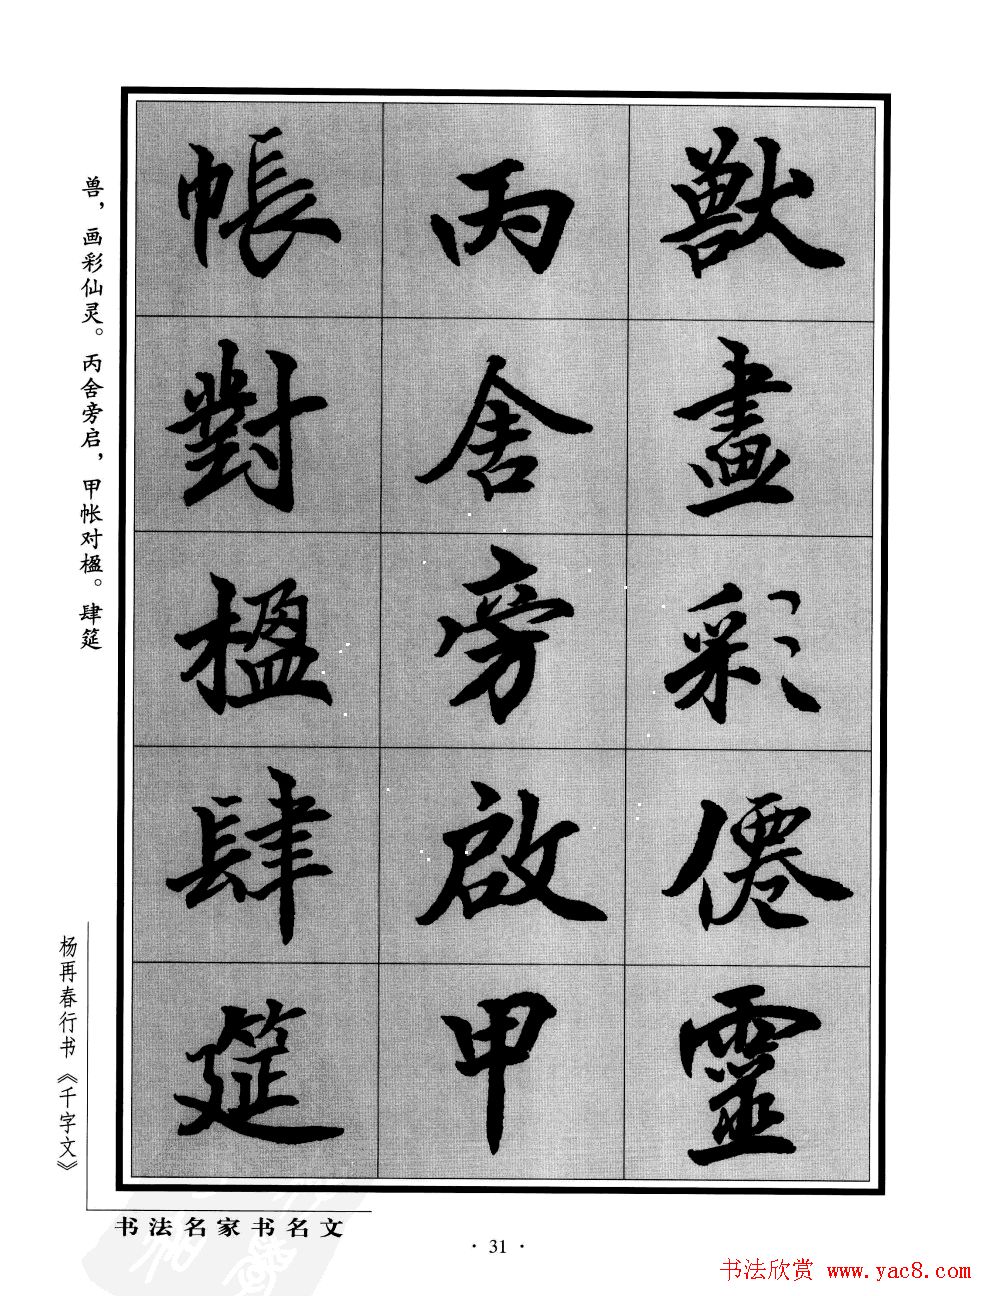 獸畫彩僊靈
丙舍旁啟甲
帳對楹肆筵
兽，画彩仙灵。丙舍旁启，甲帐对楹。肆筵
杨再春行书《千字文》
书法名家书名文
· 31 ·
书法欣赏 www.yac8.com